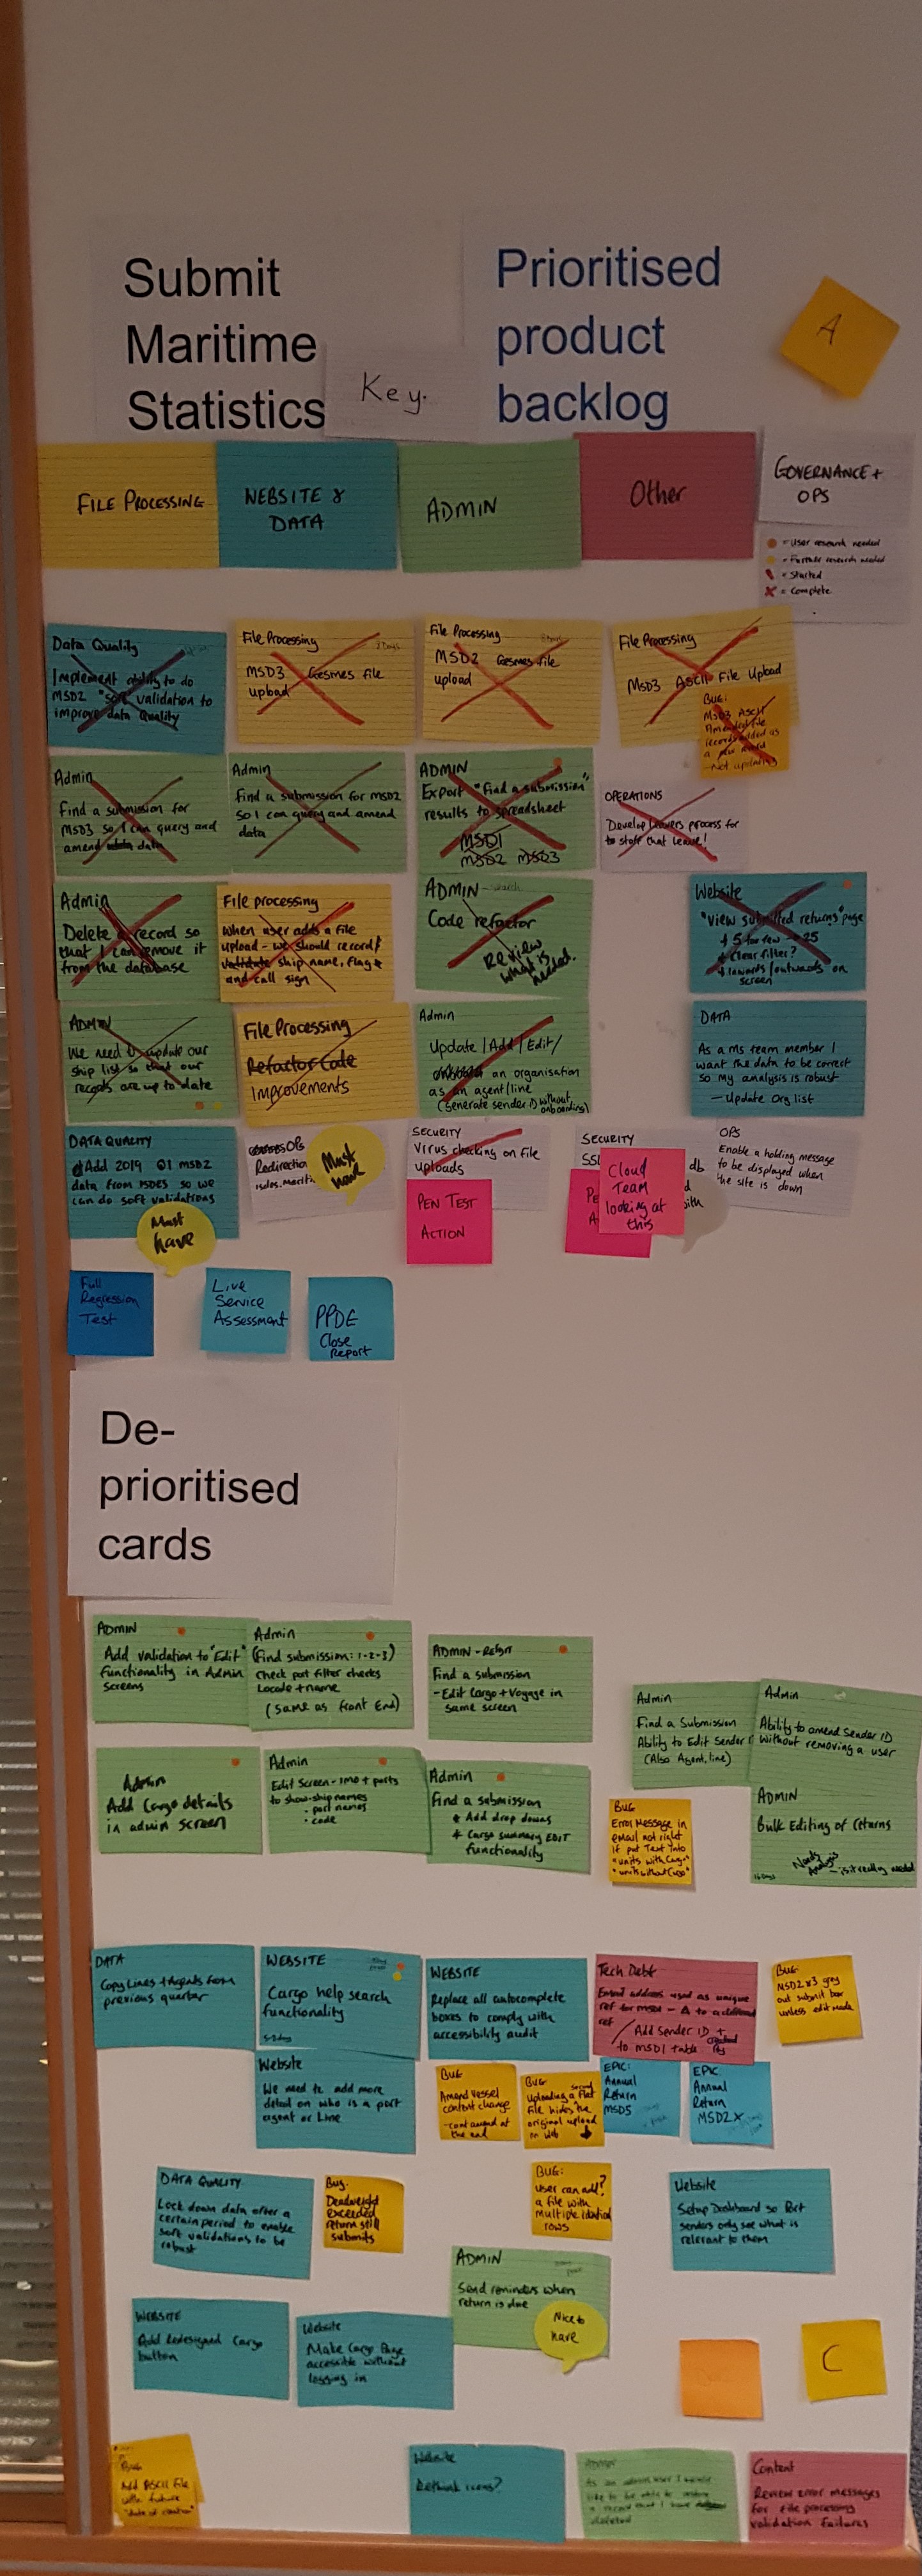 Submit
Maritime
Statistics
Key.
Prioritised
product
backlog
A
FILE PROCESSING
WEBSITE &
DATA
ADMIN
Other
GOVERNANCE +
OPS
= User research needed
= Further research needed
= Started
= Complete
Data Quality
Implement ability to do
MSD2 "soft" validation to
improve data Quality
File Processing
MSD3 Gesmes file
upload
File Processing
MSD2 Gesmes file
upload
File Processing
MSD3 ASCII File Upload
BUG:
MSD3 ASCII
Amended file
records added as
a new record
-Not updating
Admin
Find a submission for
MSD3 so I can query and
amend data
Admin
Find a submission for MSD2
so I can query and amend
data
ADMIN
Export "Find a submission"
results to spreadsheet
MSD1
MSD2 MSD3
OPERATIONS
Develop leavers process for
to staff that leave!
Admin
Delete a record so
that I can remove it
from the database
File processing
When user adds a file
upload - we should record/
validate ship name, flag +
and call sign
ADMIN - search
Code refactor
Review
what is
needed.
Website
"View submitted returns" page
+ 5 to few → 25
+ Clear filter?
+ Inwards/outwards on
screen
ADMIN
We need to update our
ship list so that our
records are up to date
File Processing
Refactor Code
Improvements
Admin
Update / Add / Edit /
an organisation
as an agent/line
(Generate sender ID without
onboarding)
DATA
As a ms team member I
want the data to be correct
so my analysis is robust
- Update Org list
DATA QUALITY
Add 2019 Q1 MSD2
data from ISDES so we
can do soft validations
Must
have
Redirection
Must
have
SECURITY
Virus checking on file
uploads
PEN TEST
ACTION
SECURITY
SSL
db
with
PE
A
Cloud
Team
looking at
this
OPS
Enable a holding message
to be displayed when
the site is down
Full
Regression
Test
Live
Service
Assessment
PPDE
Close
Report
De-
prioritised
cards
ADMIN
Add validation to "Edit"
functionality in Admin
screens
Admin
(Find submission: 1-2-3)
Check port filter checks
Locode + name
(same as front End)
ADMIN - Return
Find a submission
- Edit Cargo + Voyage in
same screen
Admin
Find a Submission
Ability to Edit Sender I
(Also Agent, line)
Admin
Ability to amend Sender ID
without removing a user
Admin
Add Cargo details
in admin screen
Admin
Edit Screen - IMO + ports
to show ship names
· port names
· code
Admin
Find a submission
* Add drop downs
* Cargo summary EDIT
functionality
BUG
Error Message in
email not right
if put Text into
"units with Cargo"
"units without Cargo"
ADMIN
Bulk Editing of returns
Needs
Analysis
- is it really needed
16 Days
DATA
Copy Lines + Agents from
previous quarter
WEBSITE
Cargo help search
functionality
WEBSITE
Replace all autocomplete
boxes to comply with
accessibility audit
Tech Debt
Email address used as unique
ref for MSD1 - Δ to additional
ref
/ Add Sender ID +
to MSD1 table
BUG
MSD2 + 3 grey
out submit bar
unless edit made
Website
We need to add more
detail on who is a port
agent or Line
BUG
Amend vessel
content change
- cont amend at
the end
BUG
Uploading a second
file hides the
original upload
on web
EPIC:
Annual
Return
MSD5
EPIC
Annual
Return
MSD2X
DATA QUALITY
Lock down data after a
certain period to enable
soft validations to be
robust
Bug.
Deadweight
exceeded
return still
submits
BUG:
User can add?
a file with
multiple identical
rows
Website
Setup Dashboard so Port
senders only see what is
relevant to them
ADMIN
Send reminders when
return is due
Nice to
have
WEBSITE
Add Redesigned Cargo
button
Website
Make Cargo Page
accessible without
logging in
C
BUG
Add ASCII file
with future
Website
Rethink icons?
As an admin user I would
like to be able to
a record that I have
deleted
Content
Review error messages
for file processing
validation failures